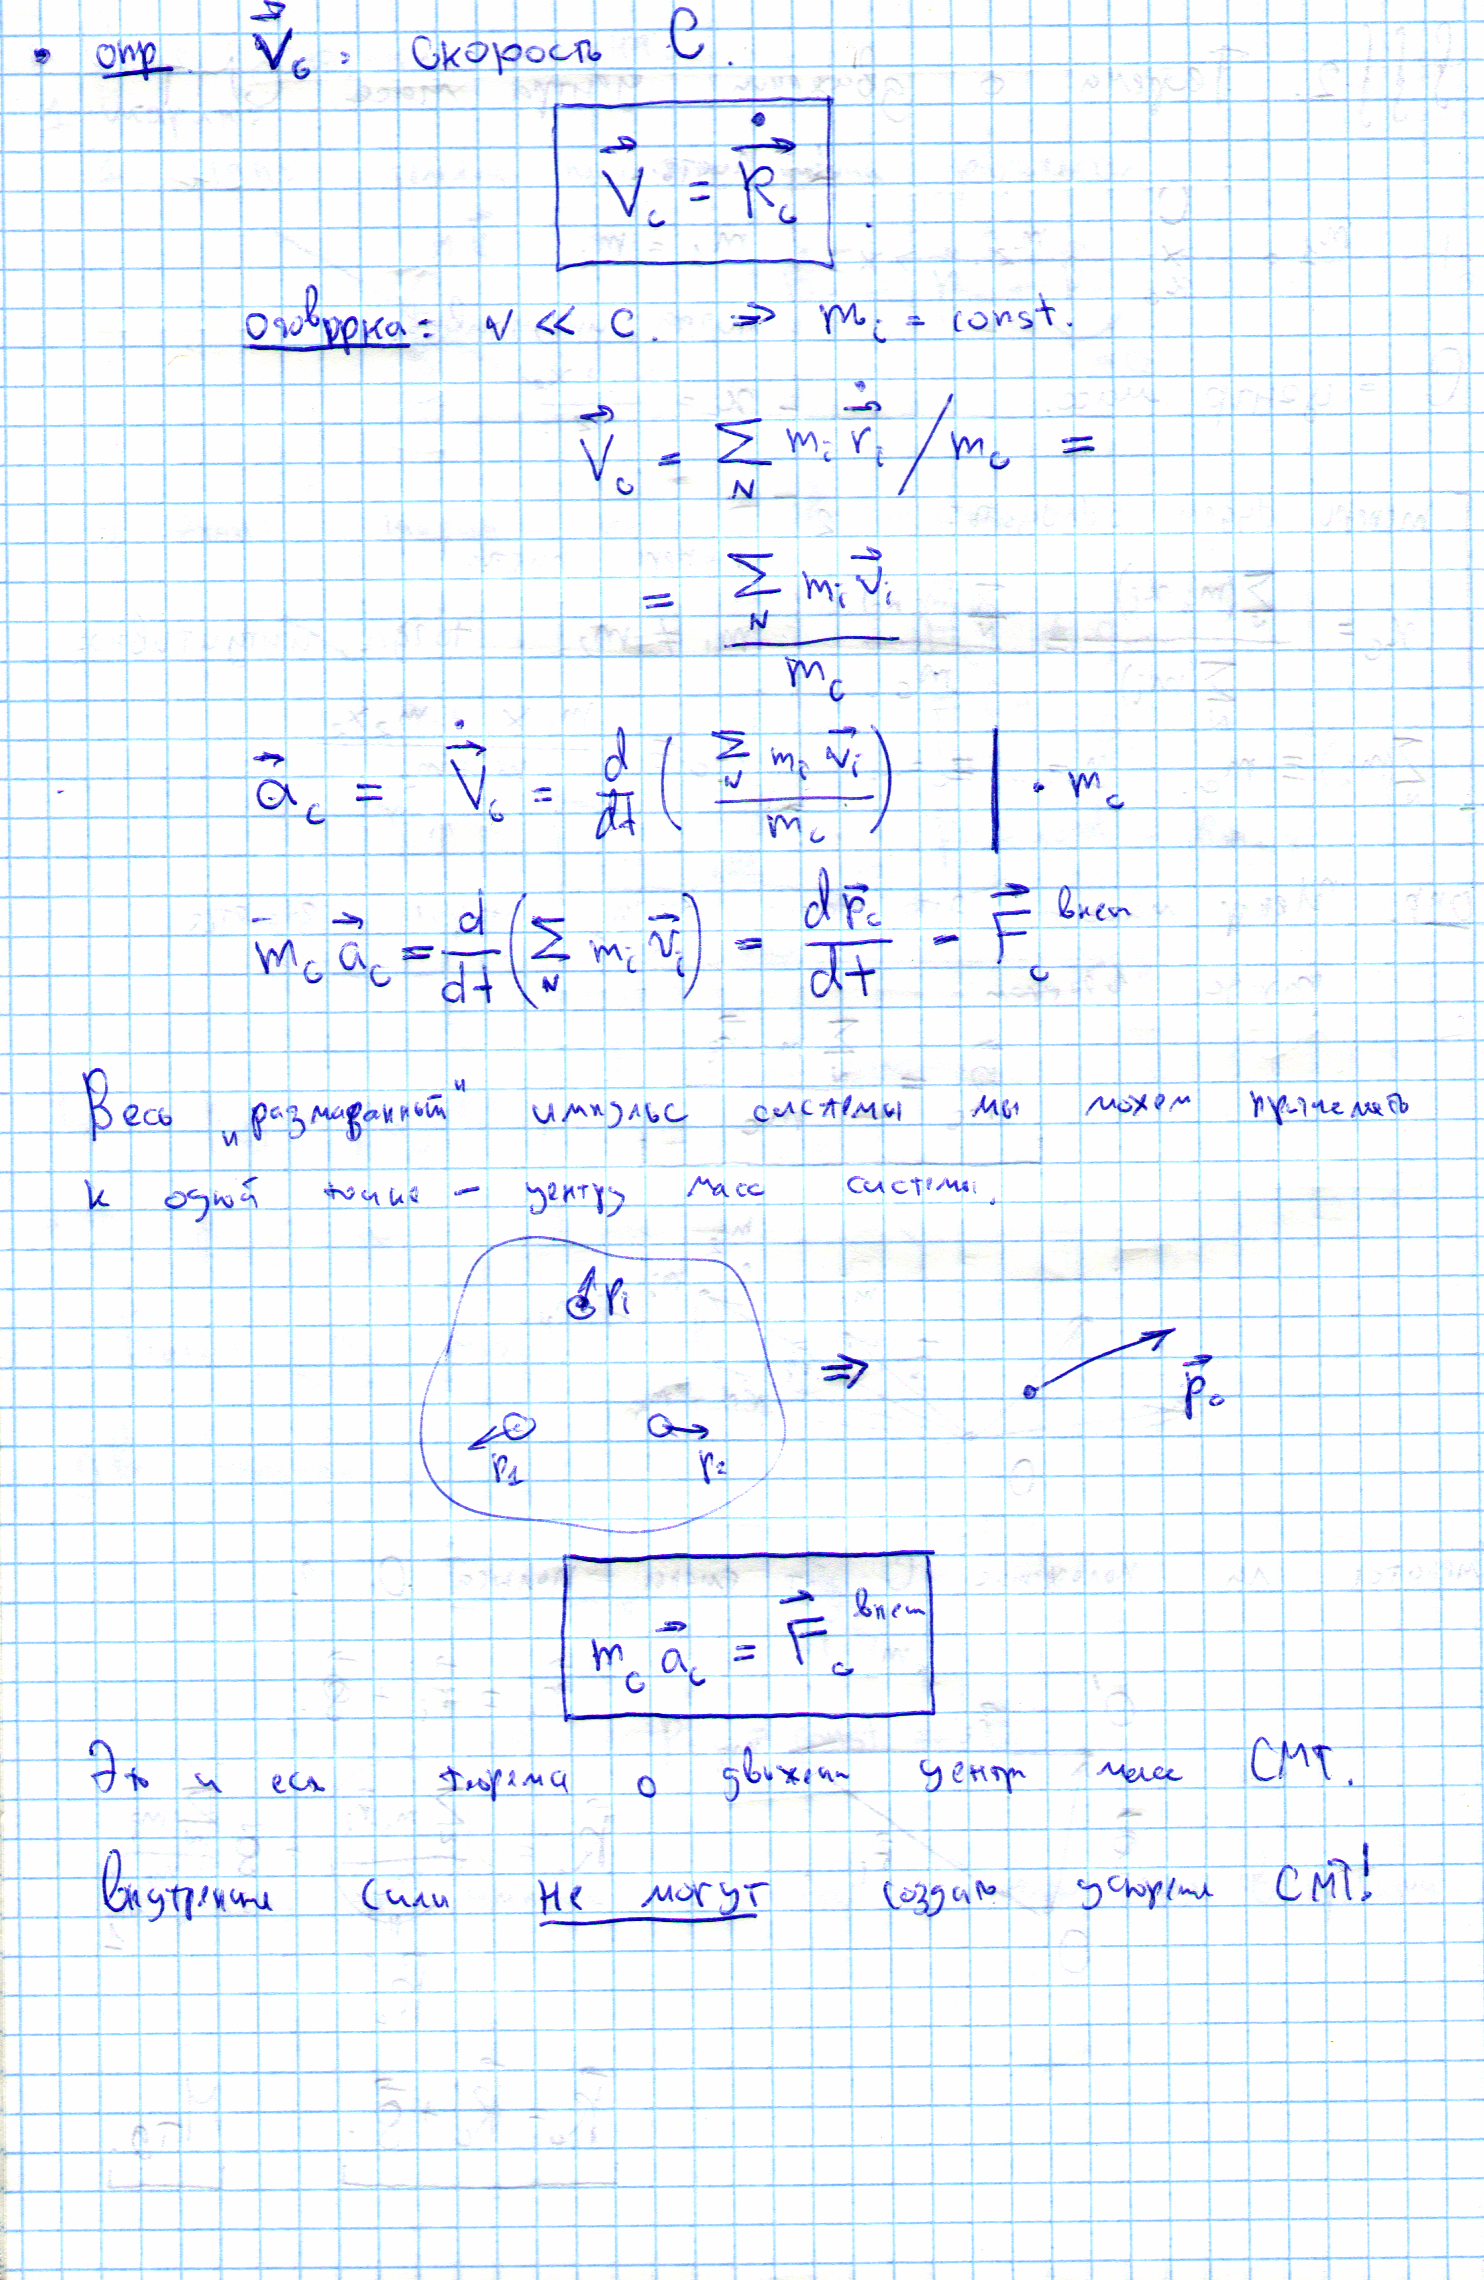 • опр. V⃗_c = скорость C.
V⃗_c = Ṙ⃗_c.
оговорка: v << c. ⇒ m_i = const.
V⃗_c = Σ_N m_i ṙ⃗_i / m_c =
= Σ_N m_i v⃗_i / m_c
a⃗_c = V̇⃗_c = d/dt ( Σ_N m_i v⃗_i / m_c ) | · m_c
m_c a⃗_c = d/dt ( Σ_N m_i v⃗_i ) = dp⃗_c / dt = F⃗_c^внеш
Весь „размазанный" импульс системы мы можем
к одной точке – центру масс системы.
p_i
⇒
p⃗_c
p_1 p_2
m_c a⃗_c = F⃗_c^внеш
Это и есть теорема о движении центр масс СМТ.
Внутренние силы не могут создать ускорение СМТ!